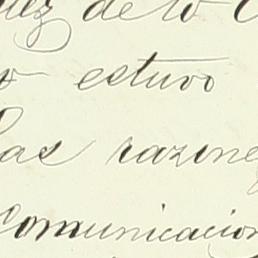 uez de lo C
o estuvo
las razone
comunicacion